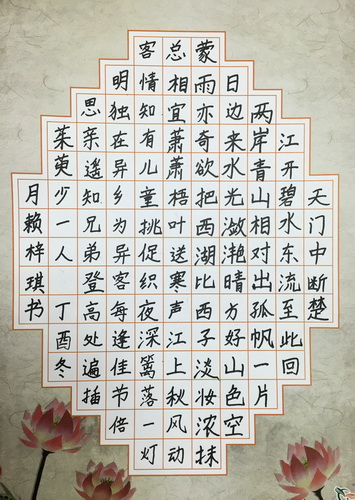 天门中断楚
江开碧水东流至此回
两岸青山相对出孤帆一片
日边来水光潋滟晴方好山色空
蒙雨亦奇欲把西湖比西子淡妆浓抹
总相宜萧萧梧叶送寒声江上秋风动
客情知有儿童挑促织夜深篱落一灯
明独在异乡为异客每逢佳节倍
思亲遥知兄弟登高处遍插
茱萸少一人丁酉冬
月赖梓琪书